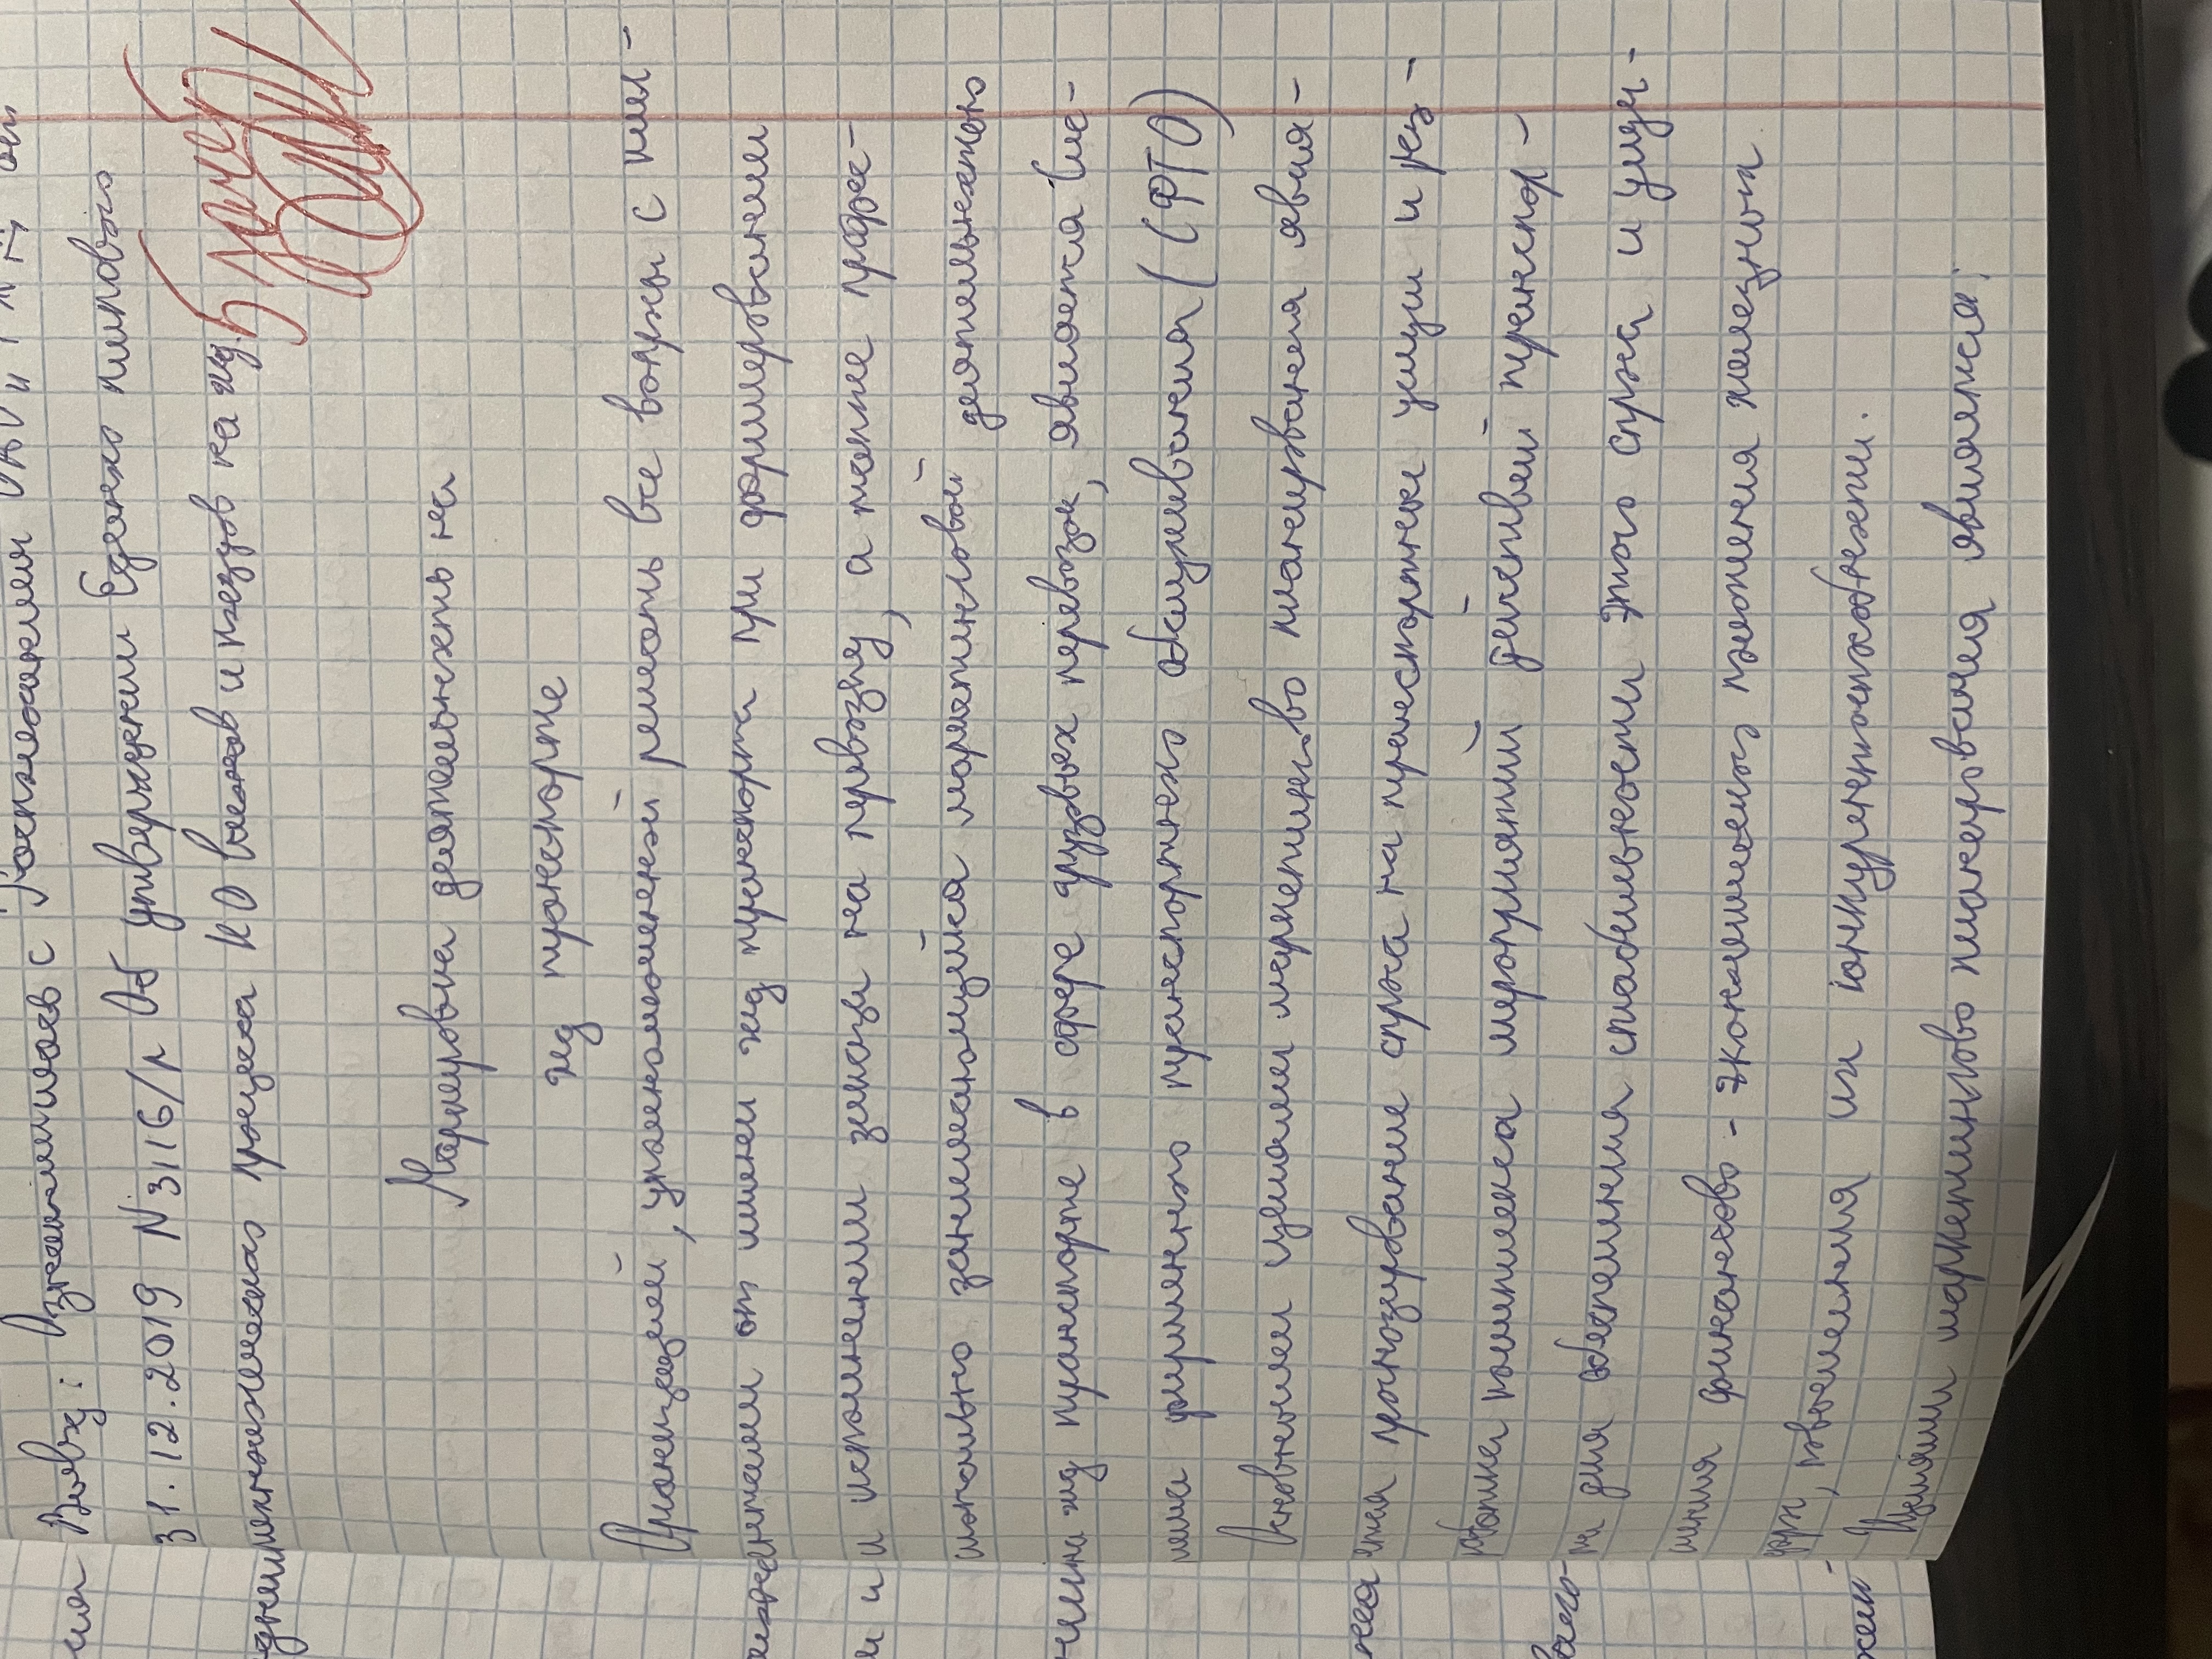 Вывод: Ознакомилась с Распоряжением ОАО "РЖД" от
31.12.2019 N 3116/р Об утверждении Единого типового
технологического процесса КО вагонов и поездов на жд.
5 зачет
Маркетинговая деятельность на
жд транспорте
Организацией, уполномоченной решать все вопросы с кли-
ентами от имени жд транспорта при формировании
и исполнении заявки на перевозку, а также профес-
сионально занимающийся маркетинговой деятельностью
на жд транспорте в сфере грузовых перевозок, является сис-
тема фирменного транспортного обслуживания (СФТО)
Основными целями маркетингового планирования явля-
ется прогнозирование спроса на транспортные услуги и раз-
работка комплекса мероприятий действий транспор-
та для обеспечения стабильности этого спроса и улуч-
шения финансово-экономического положения железных
дорог, повышения их конкурентоспособности.
Целями маркетингового планирования являются: